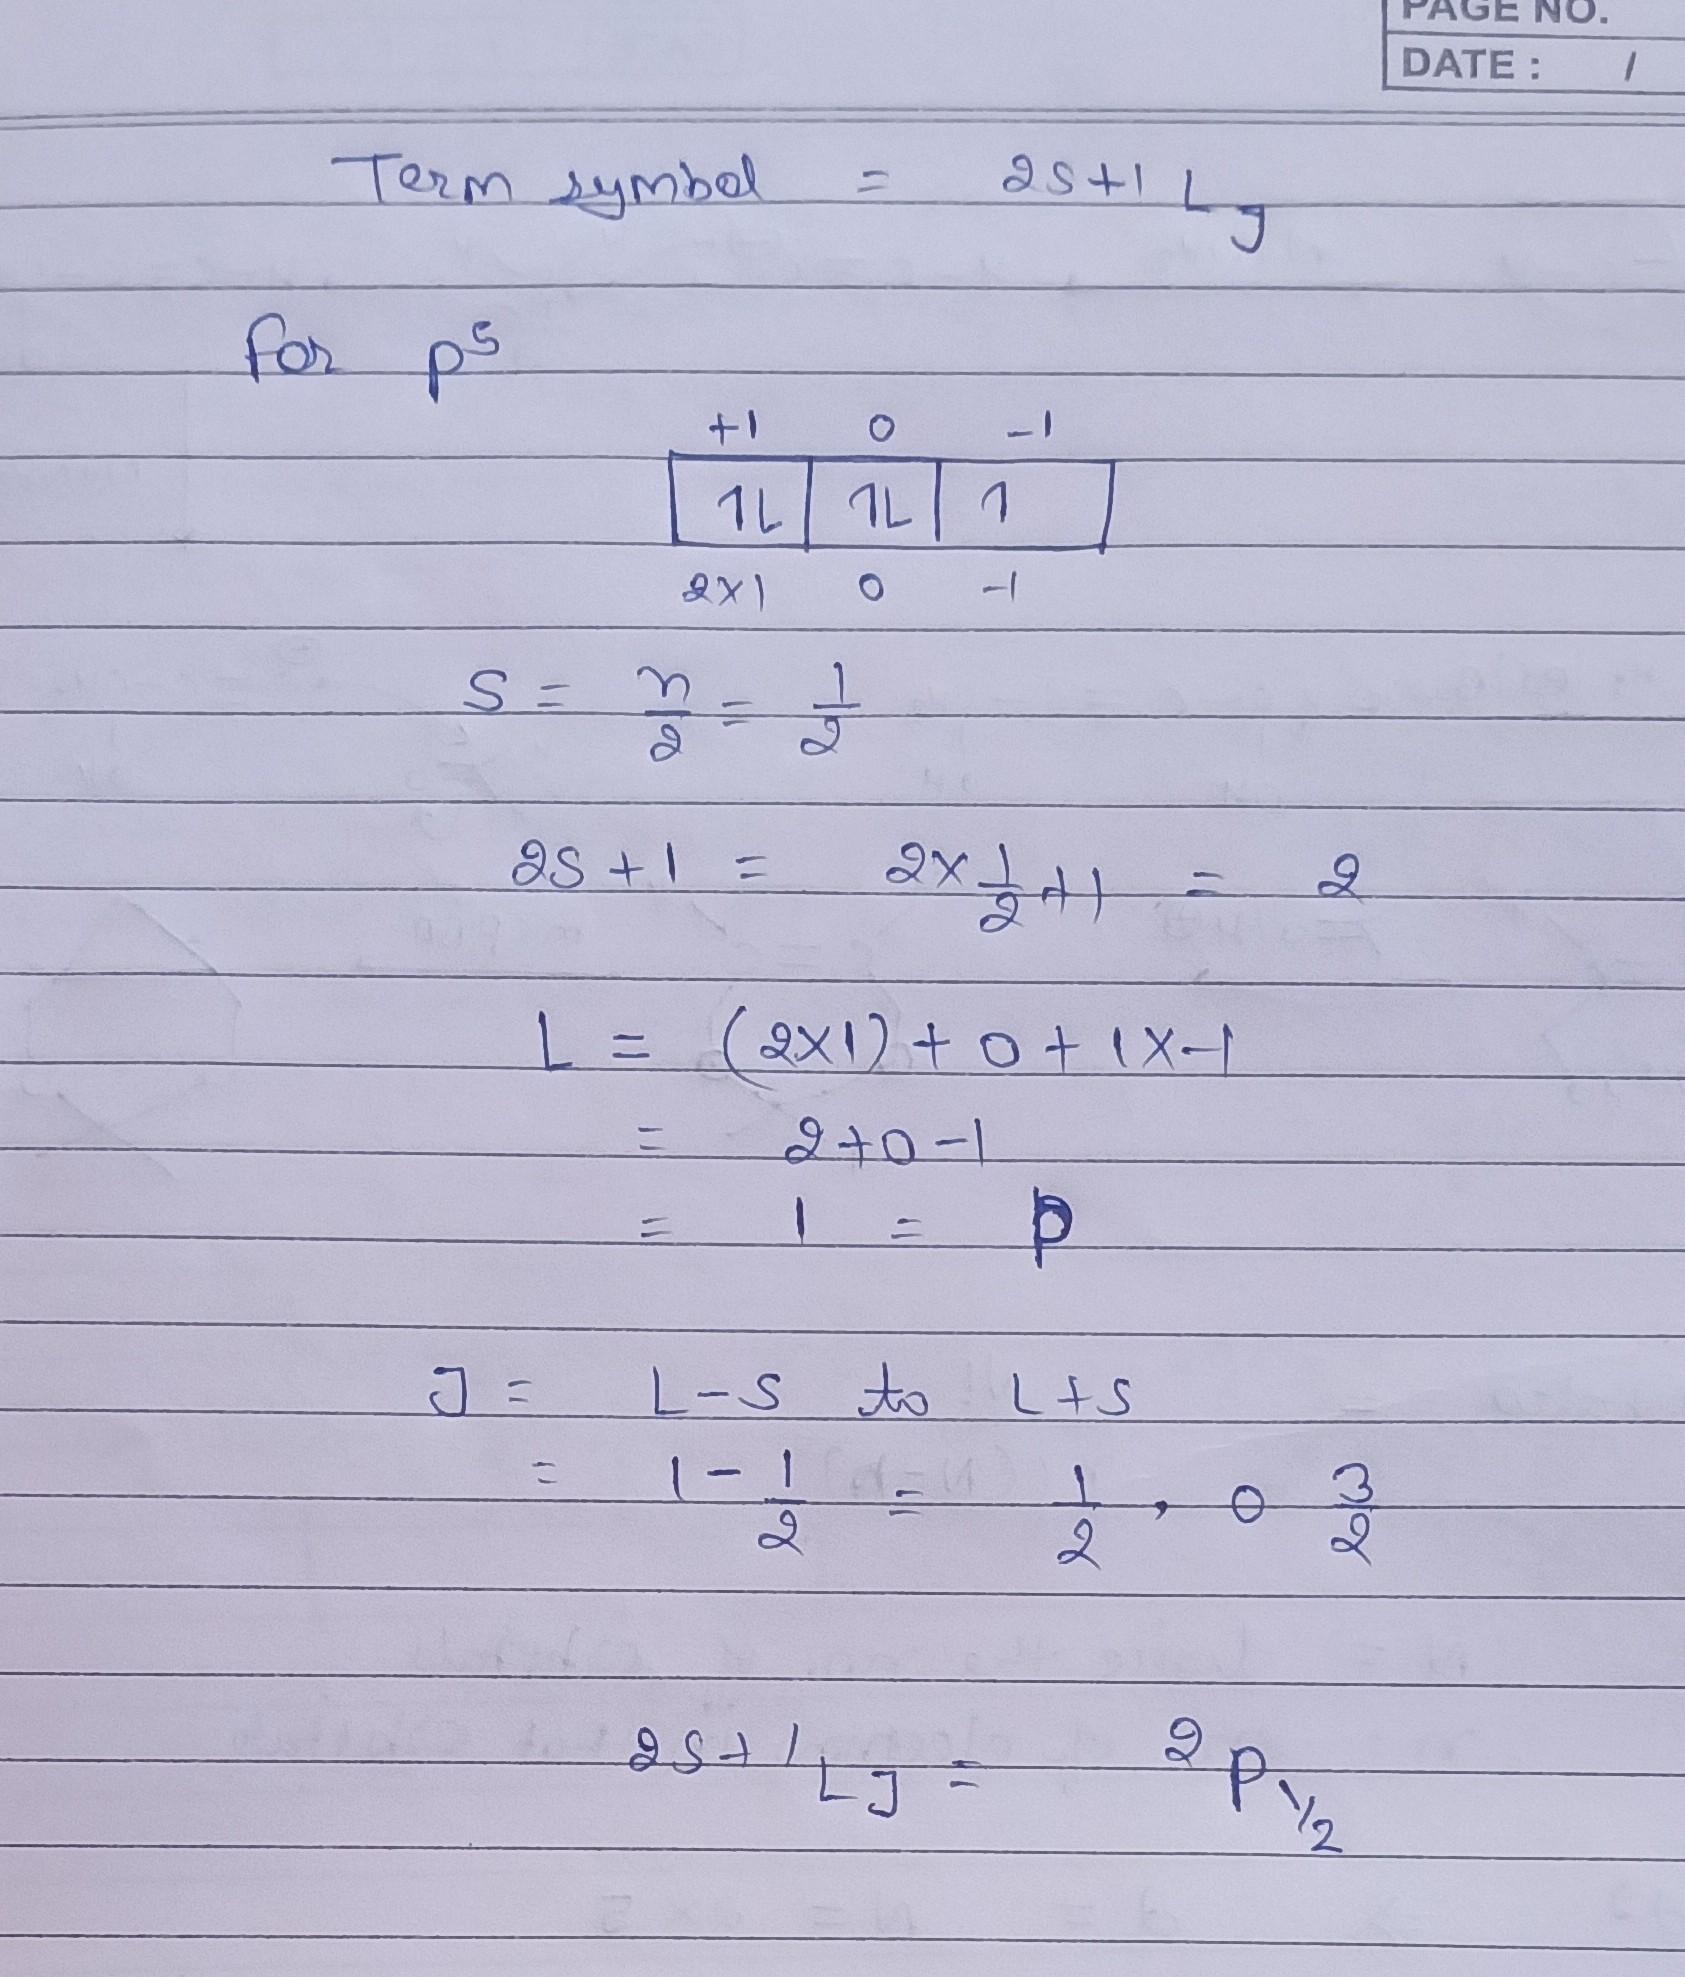 PAGE NO.
DATE : /
Term symbol = 2S+1 L J
for p⁵
+1 0 -1
1L 1L 1
2×1 0 -1
S = n/2 = 1/2
2S+1 = 2×1/2+1 = 2
L = (2×1)+0+1×-1
= 2+0-1
= 1 = P
J = L-S to L+S
= 1-1/2 = 1/2, 0 3/2
2S+1 L J = ²P 1/2